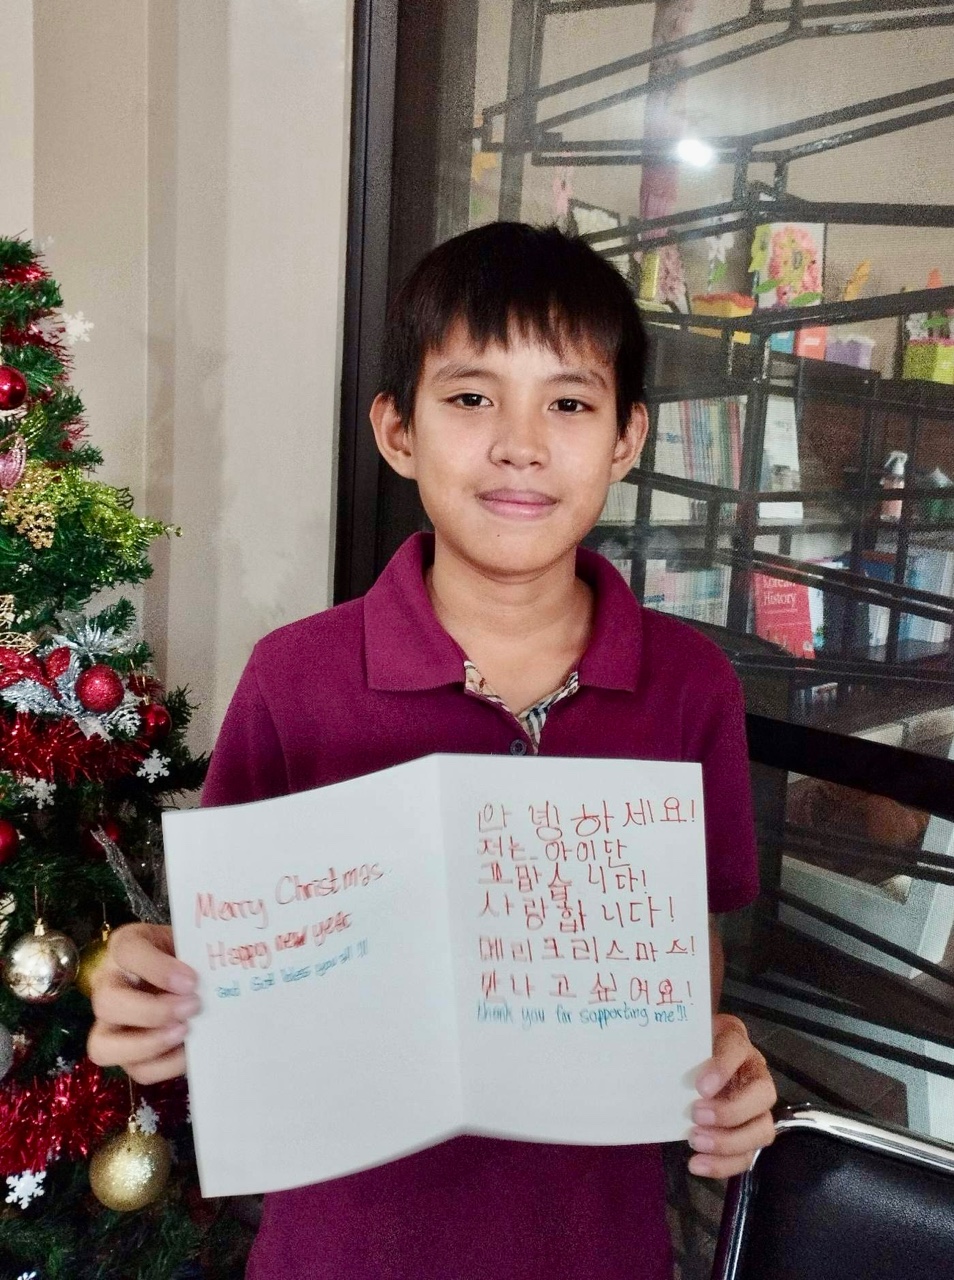 Merry Christmas
Happy new year
and God bless you all !!!
안녕하세요!
저는 아이단
고맙습니다!
사랑합니다!
메리크리스마스!
만나고싶어요!
thank you for sopporting me!!!
Korean
History